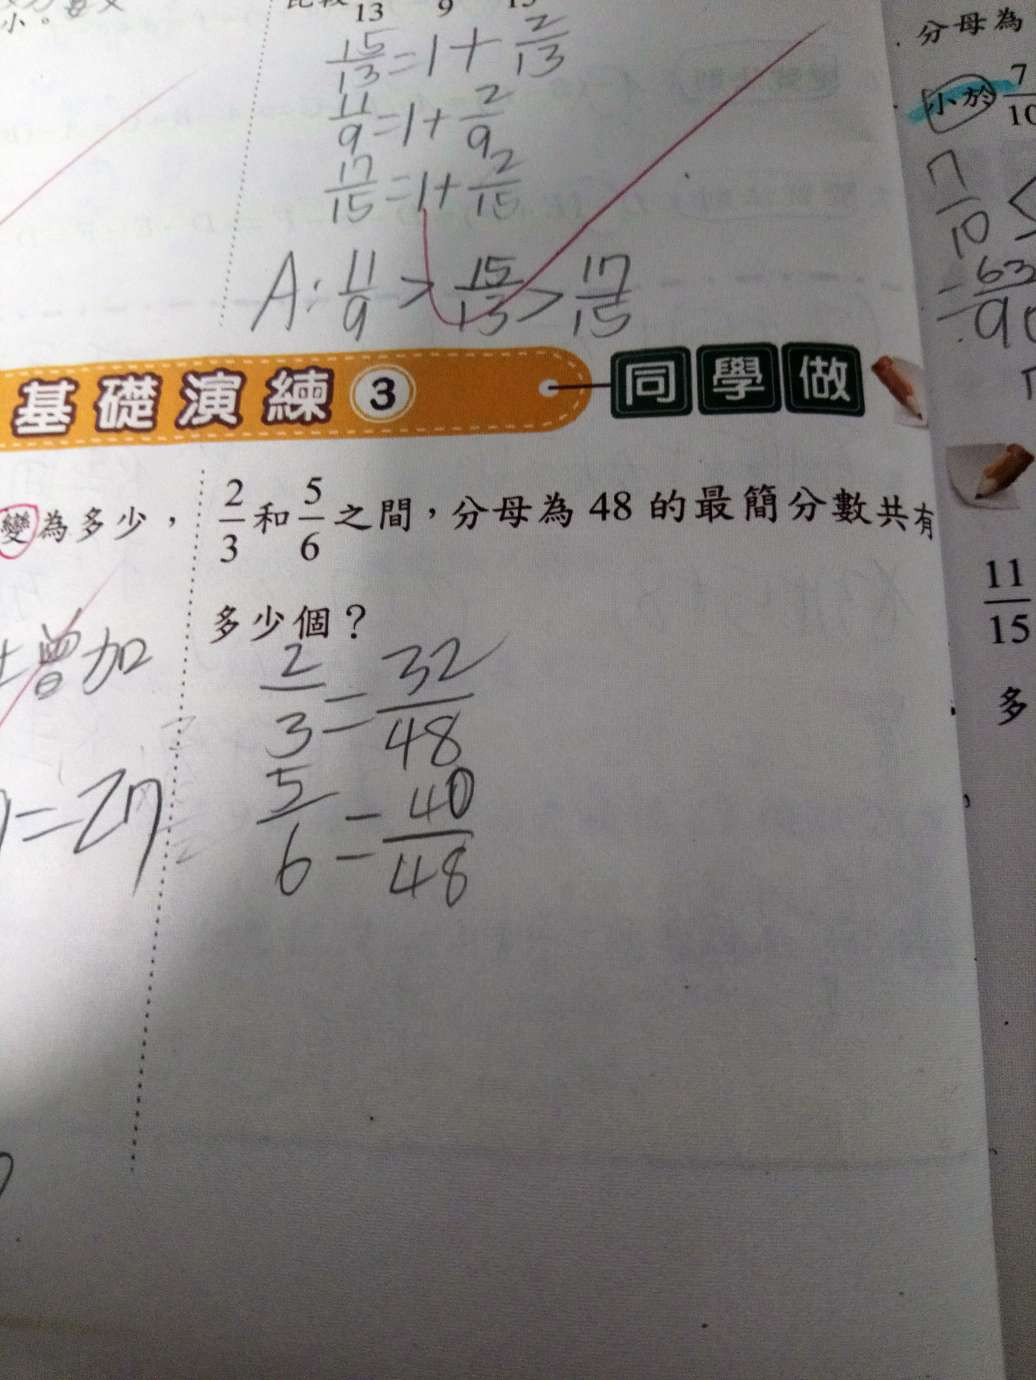 小。
13 9
15/13 = 1 + 2/13
11/9 = 1 + 2/9
17/15 = 1 + 2/15
A: 11/9 > 15/13 > 17/15
基礎演練 3 同學做
變為多少，
2/3 和 5/6 之間，分母為 48 的最簡分數共有
多少個？
增加
2/3 = 32/48
= 27
5/6 = 40/48
分母為
小於 7/10
7/10 <
= 63/90
11/15
多